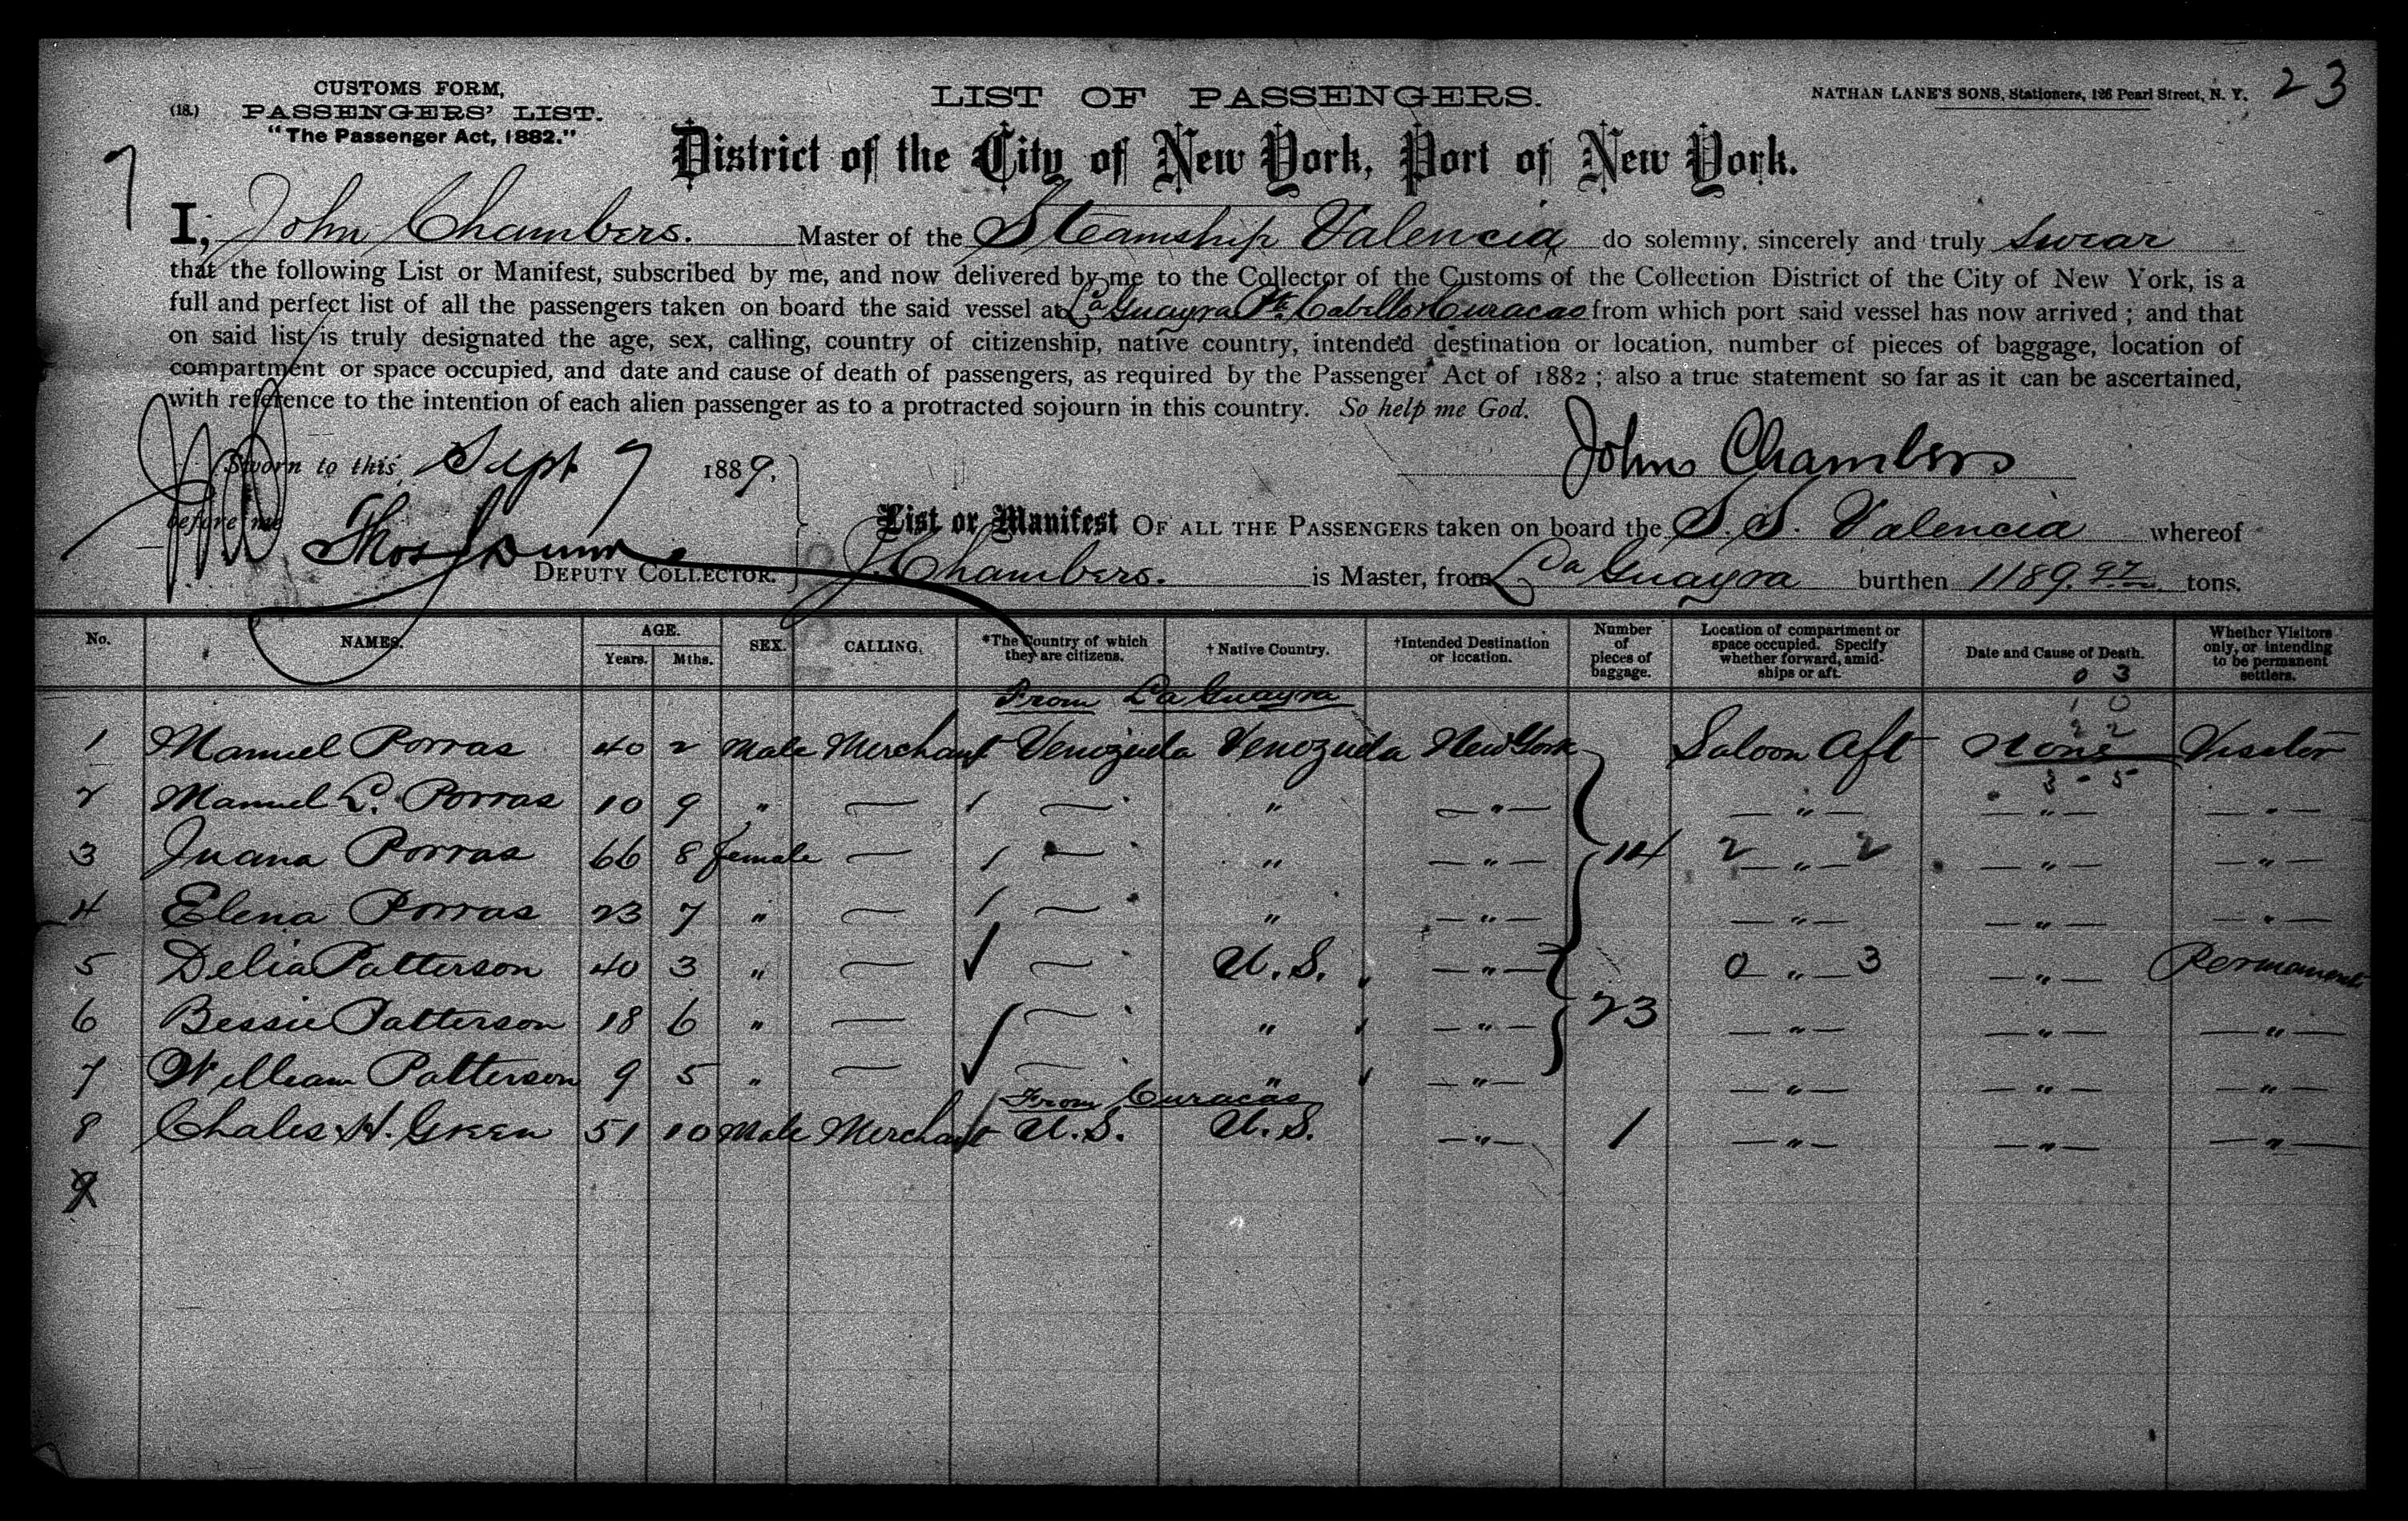 CUSTOMS FORM,
(18.) PASSENGERS' LIST.
"The Passenger Act, 1882."
LIST OF PASSENGERS.
NATHAN LANE'S SONS, Stationers, 126 Pearl Street, N. Y.
23
7
District of the City of New York, Port of New York.
I, John Chambers. Master of the Steamship Valencia do solemny, sincerely and truly swear
that the following List or Manifest, subscribed by me, and now delivered by me to the Collector of the Customs of the Collection District of the City of New York, is a
full and perfect list of all the passengers taken on board the said vessel at La Guayra Pto Cabello & Curacao from which port said vessel has now arrived ; and that
on said list is truly designated the age, sex, calling, country of citizenship, native country, intended destination or location, number of pieces of baggage, location of
compartment or space occupied, and date and cause of death of passengers, as required by the Passenger Act of 1882 ; also a true statement so far as it can be ascertained,
with reference to the intention of each alien passenger as to a protracted sojourn in this country. So help me God.
Sworn to this Sept 7 1889.
John Chambers
before me
Thos Dunn
DEPUTY COLLECTOR.
List or Manifest OF ALL THE PASSENGERS taken on board the S.S. Valencia whereof
J. Chambers. is Master, from La Guayra burthen 1189.97 tons.
No. NAMES. AGE. Years. Mths. SEX. CALLING. *The Country of which they are citizens. † Native Country. †Intended Destination or location. Number of pieces of baggage. Location of compartment or space occupied. Specify whether forward, amidships or aft. Date and Cause of Death. Whether Visitors only, or intending to be permanent settlers.
0 3
From La Guayra
1 0
2 2
1 Manuel Porras 40 2 Male Merchant Venezuela Venezuela New York Saloon Aft None Visitor
3 - 5
2 Manuel L. Porras 10 9 " — — " — " — — " — — " — — " —
3 Juana Porras 66 8 female — — " — " — 14 2 — " — 2 — " — — " —
4 Elena Porras 23 7 " — — " — " — — " — — " — — " —
5 Delia Patterson 40 3 " — — U.S. — " — 0 — " — 3 — " — Permanent
6 Bessie Patterson 18 6 " — — " — " — 23 — " — — " — — " —
7 William Patterson 9 5 " — — " — " — — " — — " — — " —
From Curacao
8 Chales H. Green 51 10 Male Merchant U.S. U.S. — " — 1 — " — — " — — " —
9